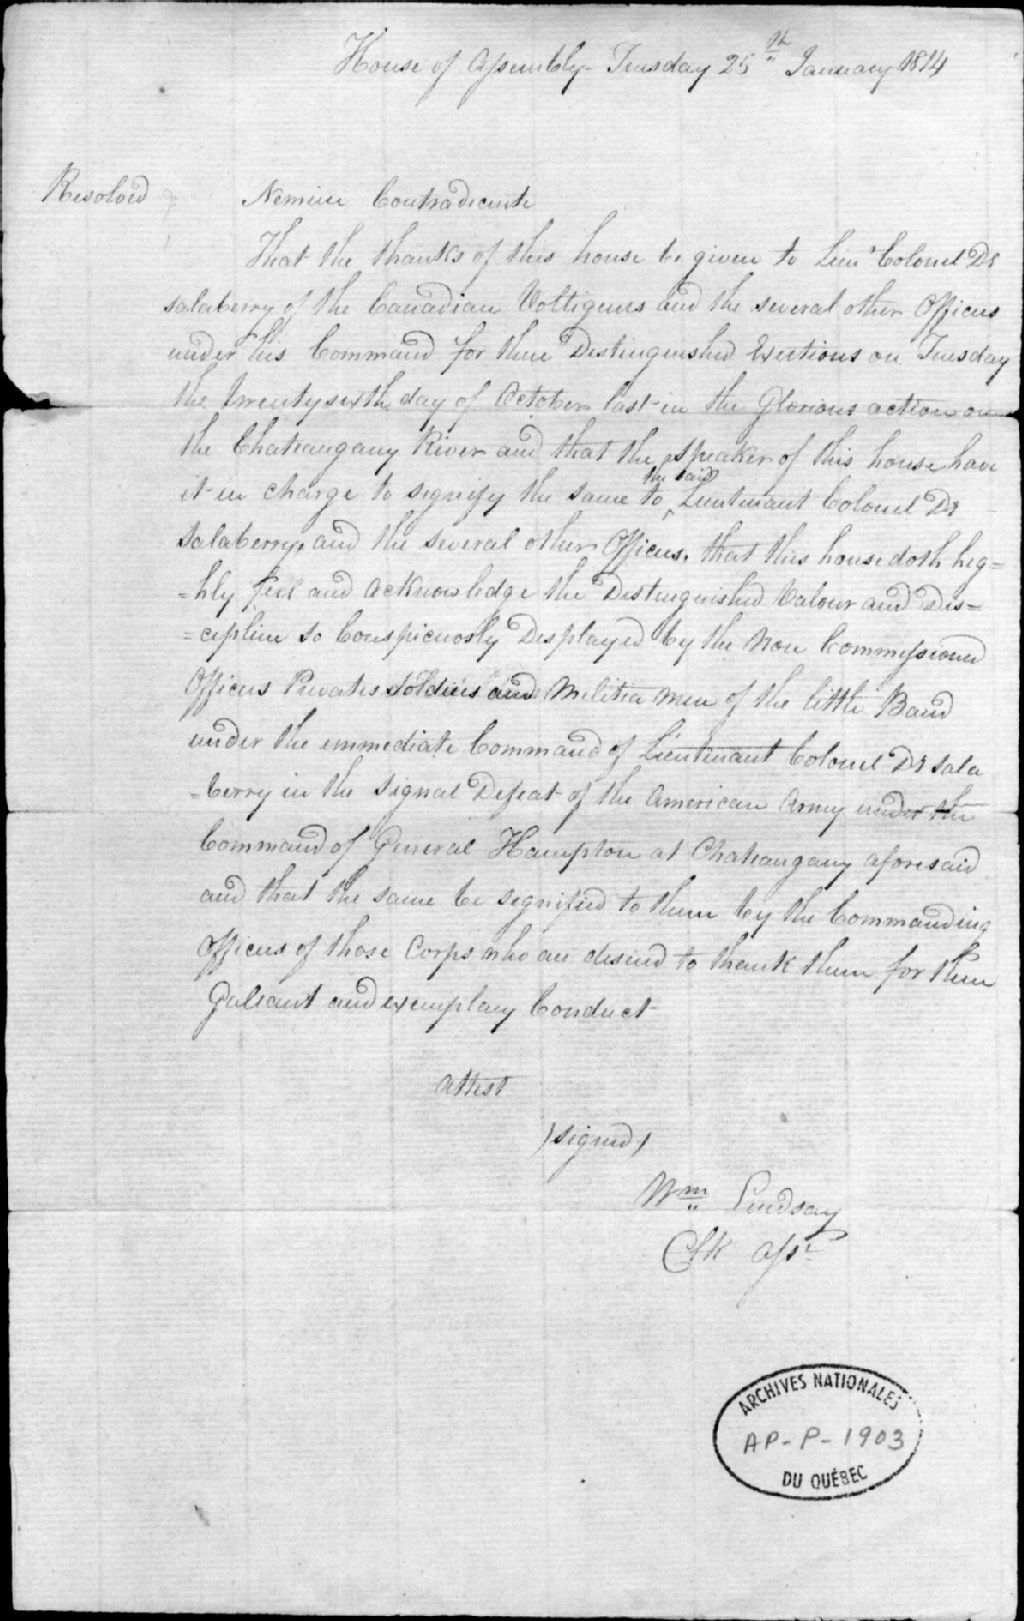 House of Assembly Tuesday 25th January 1814
Resolved Nemine Contradicente
That the thanks of this house be given to Lieut Colonel De
salaberry of the Canadian Voltigeurs and the several other Officers
under his Command for their Distinguished Exertions on Tuesday
the twenty sixth day of October last in the Glorious action on
the Chateaugany River and that the speaker of this house have
it in charge to signify the same to the said Lieutenant Colonel De
Salaberry and the several other Officers, that this house doth hig=
=hly feel and acknowledge the Distinguished Valour and Dis=
=cipline so Conspicuosly Displayed by the Non Commissioned
Officers Privates soldiers and Militia men of the little Band
under the immediate Command of Lieutenant Colonel De Sala
=berry in the signal Defeat of the American Army under the
Command of General Hampton at Chateaugany aforesaid
and that the same be signified to them by the Commanding
Officers of those Corps who are desired to thank them for their
Gallant and exemplary Conduct
Attest
)signed)
Wm Lindsay
Clk Assy
ARCHIVES NATIONALES
AP-P-1903
DU QUÉBEC